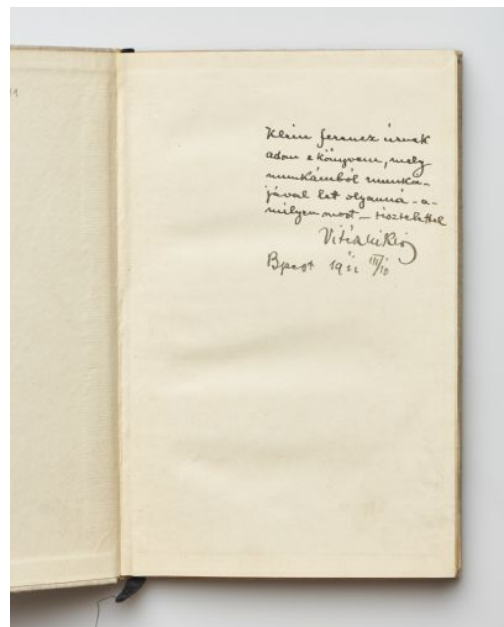 Klein Ferencz úrnak
adom e könyvem, mely
munkámból munká-
jával let olyanná - a-
milyen most — tisztelettel
Bpest 19 III/10